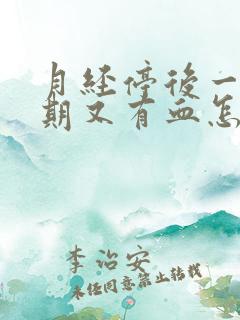 月经停后一
期又有血怎
李治安
未经同意禁止转载